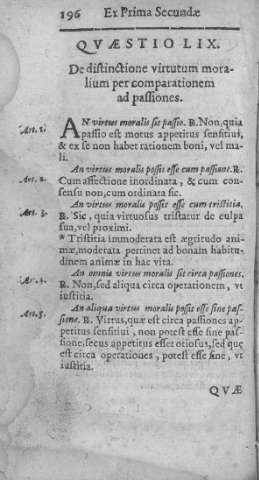 196 Ex Prima Secundæ
QVÆSTIO LIX.
De distinctione virtutum mora-
lium per comparationem
ad passiones.
Art. 1. AN virtus moralis sit passio. R. Non, quia
passio est motus appetitus sensitiui,
& ex se non habet rationem boni, vel ma-
li.
An virtus moralis possit esse cum passione. R.
Art. 2. Cum affectione inordinata, & cum con-
sensu non, cum ordinata sic.
An virtus moralis possit esse cum tristitia,
Art. 3. R. Sic, quia virtuosus tristatur de culpa
sua, vel proximi.
* Tristitia immoderata est ægritudo ani-
mæ, moderata pertinet ad bonam habitu-
dinem animæ in hac vita.
An omnis virtus moralis sit circa passiones.
Art. 4. R. Non, sed aliqua circa operationem, vt
iustitia.
An aliqua virtus moralis possit esse sine pas-
Art. 5. sione. R. Virtus, quæ est circa passiones ap-
petitus sensitiui, non potest esse sine pas-
sione, secus appetitus esset otiosus, sed quę
est circa operationes, potest esse sine, vt
iustitia.
QVÆ